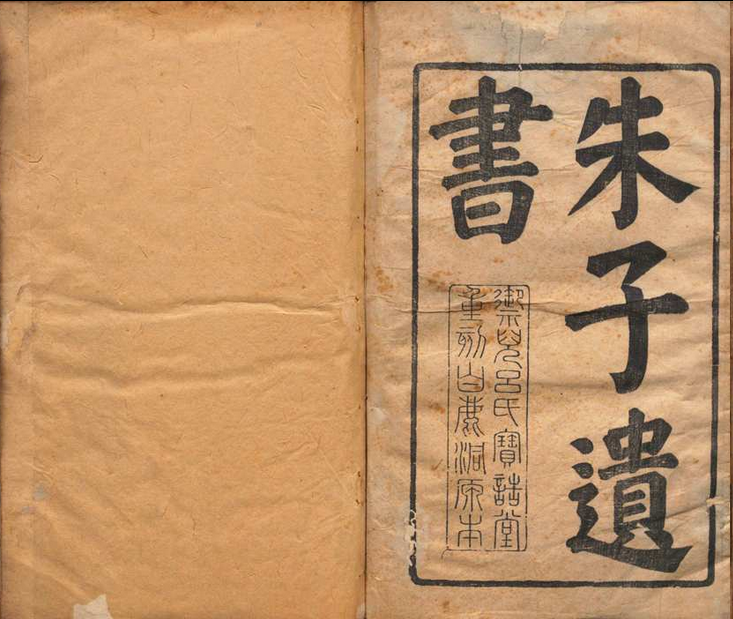 朱子遺
書
禦兒呂氏寶誥堂
重刻白鹿洞原本